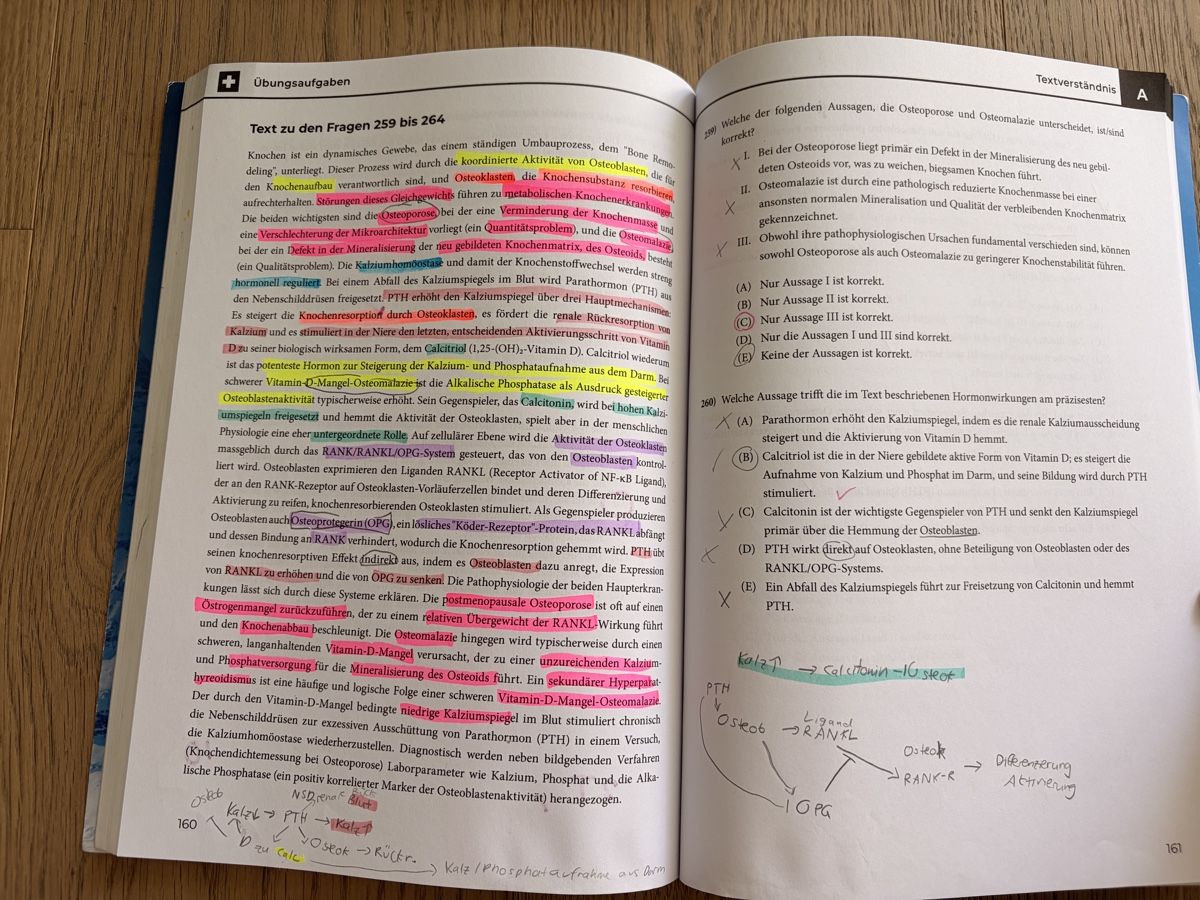 Übungsaufgaben
Text zu den Fragen 259 bis 264
Knochen ist ein dynamisches Gewebe, das einem ständigen Umbauprozess, dem "Bone Remo-
deling", unterliegt. Dieser Prozess wird durch die koordinierte Aktivität von Osteoblasten, die für
den Knochenaufbau verantwortlich sind, und Osteoklasten, die Knochensubstanz resorbieren,
aufrechterhalten. Störungen dieses Gleichgewichts führen zu metabolischen Knochenerkrankungen.
Die beiden wichtigsten sind die Osteoporose, bei der eine Verminderung der Knochenmasse und
eine Verschlechterung der Mikroarchitektur vorliegt (ein Quantitätsproblem), und die Osteomalazie,
bei der ein Defekt in der Mineralisierung der neu gebildeten Knochenmatrix, des Osteoids, besteht
(ein Qualitätsproblem). Die Kalziumhomöostase und damit der Knochenstoffwechsel werden streng
hormonell reguliert. Bei einem Abfall des Kalziumspiegels im Blut wird Parathormon (PTH) aus
den Nebenschilddrüsen freigesetzt. PTH erhöht den Kalziumspiegel über drei Hauptmechanismen:
Es steigert die Knochenresorption durch Osteoklasten, es fördert die renale Rückresorption von
Kalzium und es stimuliert in der Niere den letzten, entscheidenden Aktivierungsschritt von Vitamin
D zu seiner biologisch wirksamen Form, dem Calcitriol (1,25-(OH)₂-Vitamin D). Calcitriol wiederum
ist das potenteste Hormon zur Steigerung der Kalzium- und Phosphataufnahme aus dem Darm. Bei
schwerer Vitamin-D-Mangel-Osteomalazie ist die Alkalische Phosphatase als Ausdruck gesteigerter
Osteoblastenaktivität typischerweise erhöht. Sein Gegenspieler, das Calcitonin, wird bei hohen Kalzi-
umspiegeln freigesetzt und hemmt die Aktivität der Osteoklasten, spielt aber in der menschlichen
Physiologie eine eher untergeordnete Rolle. Auf zellulärer Ebene wird die Aktivität der Osteoklasten
massgeblich durch das RANK/RANKL/OPG-System gesteuert, das von den Osteoblasten kontrol-
liert wird. Osteoblasten exprimieren den Liganden RANKL (Receptor Activator of NF-κB Ligand),
der an den RANK-Rezeptor auf Osteoklasten-Vorläuferzellen bindet und deren Differenzierung und
Aktivierung zu reifen, knochenresorbierenden Osteoklasten stimuliert. Als Gegenspieler produzieren
Osteoblasten auch Osteoprotegerin (OPG), ein lösliches "Köder-Rezeptor"-Protein, das RANKL abfängt
und dessen Bindung an RANK verhindert, wodurch die Knochenresorption gehemmt wird. PTH übt
seinen knochenresorptiven Effekt indirekt aus, indem es Osteoblasten dazu anregt, die Expression
von RANKL zu erhöhen und die von OPG zu senken. Die Pathophysiologie der beiden Haupterkran-
kungen lässt sich durch diese Systeme erklären. Die postmenopausale Osteoporose ist oft auf einen
Östrogenmangel zurückzuführen, der zu einem relativen Übergewicht der RANKL-Wirkung führt
und den Knochenabbau beschleunigt. Die Osteomalazie hingegen wird typischerweise durch einen
schweren, langanhaltenden Vitamin-D-Mangel verursacht, der zu einer unzureichenden Kalzium-
und Phosphatversorgung für die Mineralisierung des Osteoids führt. Ein sekundärer Hyperparat-
hyreoidismus ist eine häufige und logische Folge einer schweren Vitamin-D-Mangel-Osteomalazie.
Der durch den Vitamin-D-Mangel bedingte niedrige Kalziumspiegel im Blut stimuliert chronisch
die Nebenschilddrüsen zur exzessiven Ausschüttung von Parathormon (PTH) in einem Versuch,
die Kalziumhomöostase wiederherzustellen. Diagnostisch werden neben bildgebenden Verfahren
(Knochendichtemessung bei Osteoporose) Laborparameter wie Kalzium, Phosphat und die Alka-
lische Phosphatase (ein positiv korrelierter Marker der Osteoblastenaktivität) herangezogen.
NSD renale Rück
Osteob Blut
Kalz↓ → PTH → Kalz↑
160
D zu Calc Osteok → Rückr.
→ Kalz/Phosphataufnahme aus Darm
Textverständnis
A
259) Welche der folgenden Aussagen, die Osteoporose und Osteomalazie unterscheidet, ist/sind
korrekt?
I. Bei der Osteoporose liegt primär ein Defekt in der Mineralisierung des neu gebil-
deten Osteoids vor, was zu weichen, biegsamen Knochen führt.
II. Osteomalazie ist durch eine pathologisch reduzierte Knochenmasse bei einer
ansonsten normalen Mineralisation und Qualität der verbleibenden Knochenmatrix
gekennzeichnet.
III. Obwohl ihre pathophysiologischen Ursachen fundamental verschieden sind, können
sowohl Osteoporose als auch Osteomalazie zu geringerer Knochenstabilität führen.
(A) Nur Aussage I ist korrekt.
(B) Nur Aussage II ist korrekt.
(C) Nur Aussage III ist korrekt.
(D) Nur die Aussagen I und III sind korrekt.
(E) Keine der Aussagen ist korrekt.
260) Welche Aussage trifft die im Text beschriebenen Hormonwirkungen am präzisesten?
(A) Parathormon erhöht den Kalziumspiegel, indem es die renale Kalziumausscheidung
steigert und die Aktivierung von Vitamin D hemmt.
(B) Calcitriol ist die in der Niere gebildete aktive Form von Vitamin D; es steigert die
Aufnahme von Kalzium und Phosphat im Darm, und seine Bildung wird durch PTH
stimuliert.
(C) Calcitonin ist der wichtigste Gegenspieler von PTH und senkt den Kalziumspiegel
primär über die Hemmung der Osteoblasten.
(D) PTH wirkt direkt auf Osteoklasten, ohne Beteiligung von Osteoblasten oder des
RANKL/OPG-Systems.
(E) Ein Abfall des Kalziumspiegels führt zur Freisetzung von Calcitonin und hemmt
PTH.
Kalz↑ → Calcitonin
PTH
Ligand
Osteob → RANKL
Osteok
RANK-R → Differenzierung
Aktivierung
OPG
161